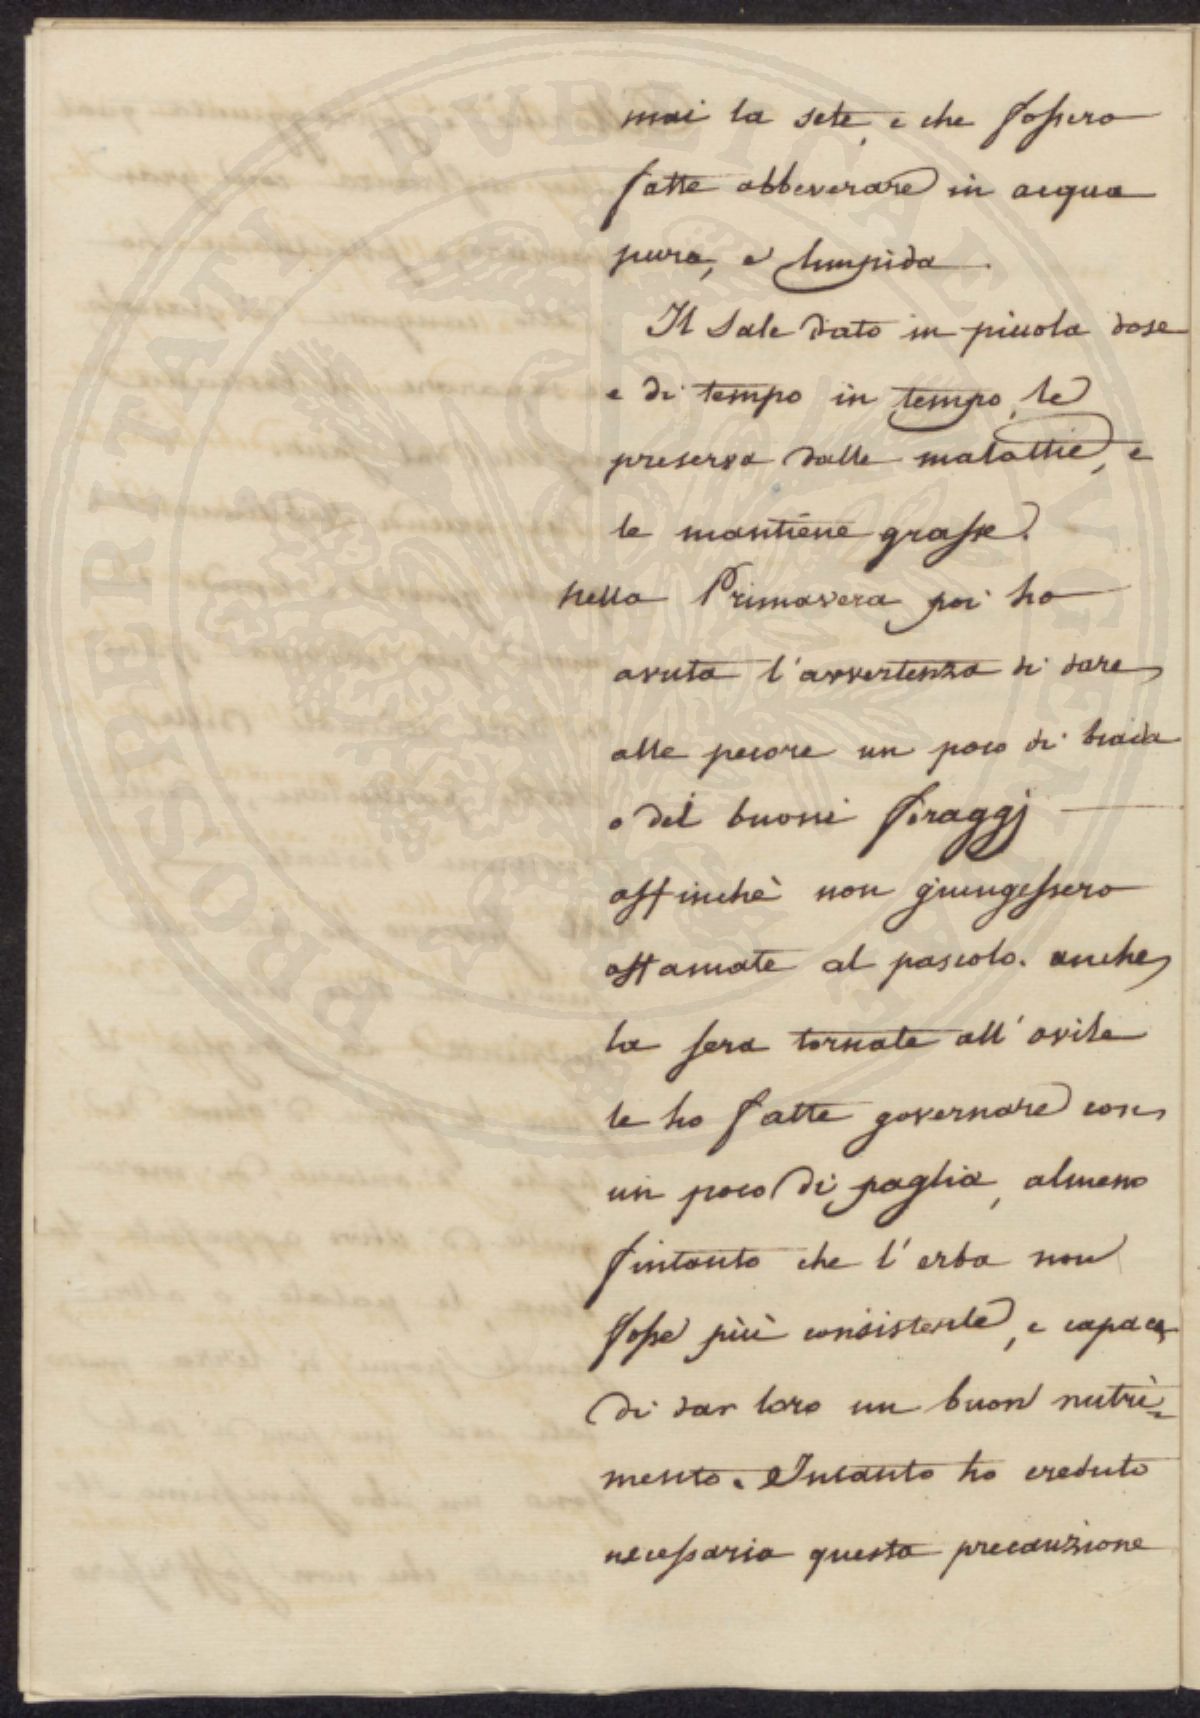 mai la sete, e che fossero
fatte abbeverare in acqua
pura, e limpida.
Il Sale dato in piccola dose
e di tempo in tempo, le
preserva dalle malattie, e
le mantiene grasse.
Nella Primavera poi ho
avuta l'avvertenza di dare
alle pecore un poco di biada
o dei buoni foraggj
affinchè non giungessero
affamate al pascolo. anche
la sera tornate all'ovile
le ho fatte governare con
un poco di paglia, almeno
fintanto che l'erba non
fosse più consistente, e capace
di dar loro un buon nutri=
mento. Intanto ho creduto
necessaria questa precauzione
PROSPERITATI PUBLICAE AUGENDAE